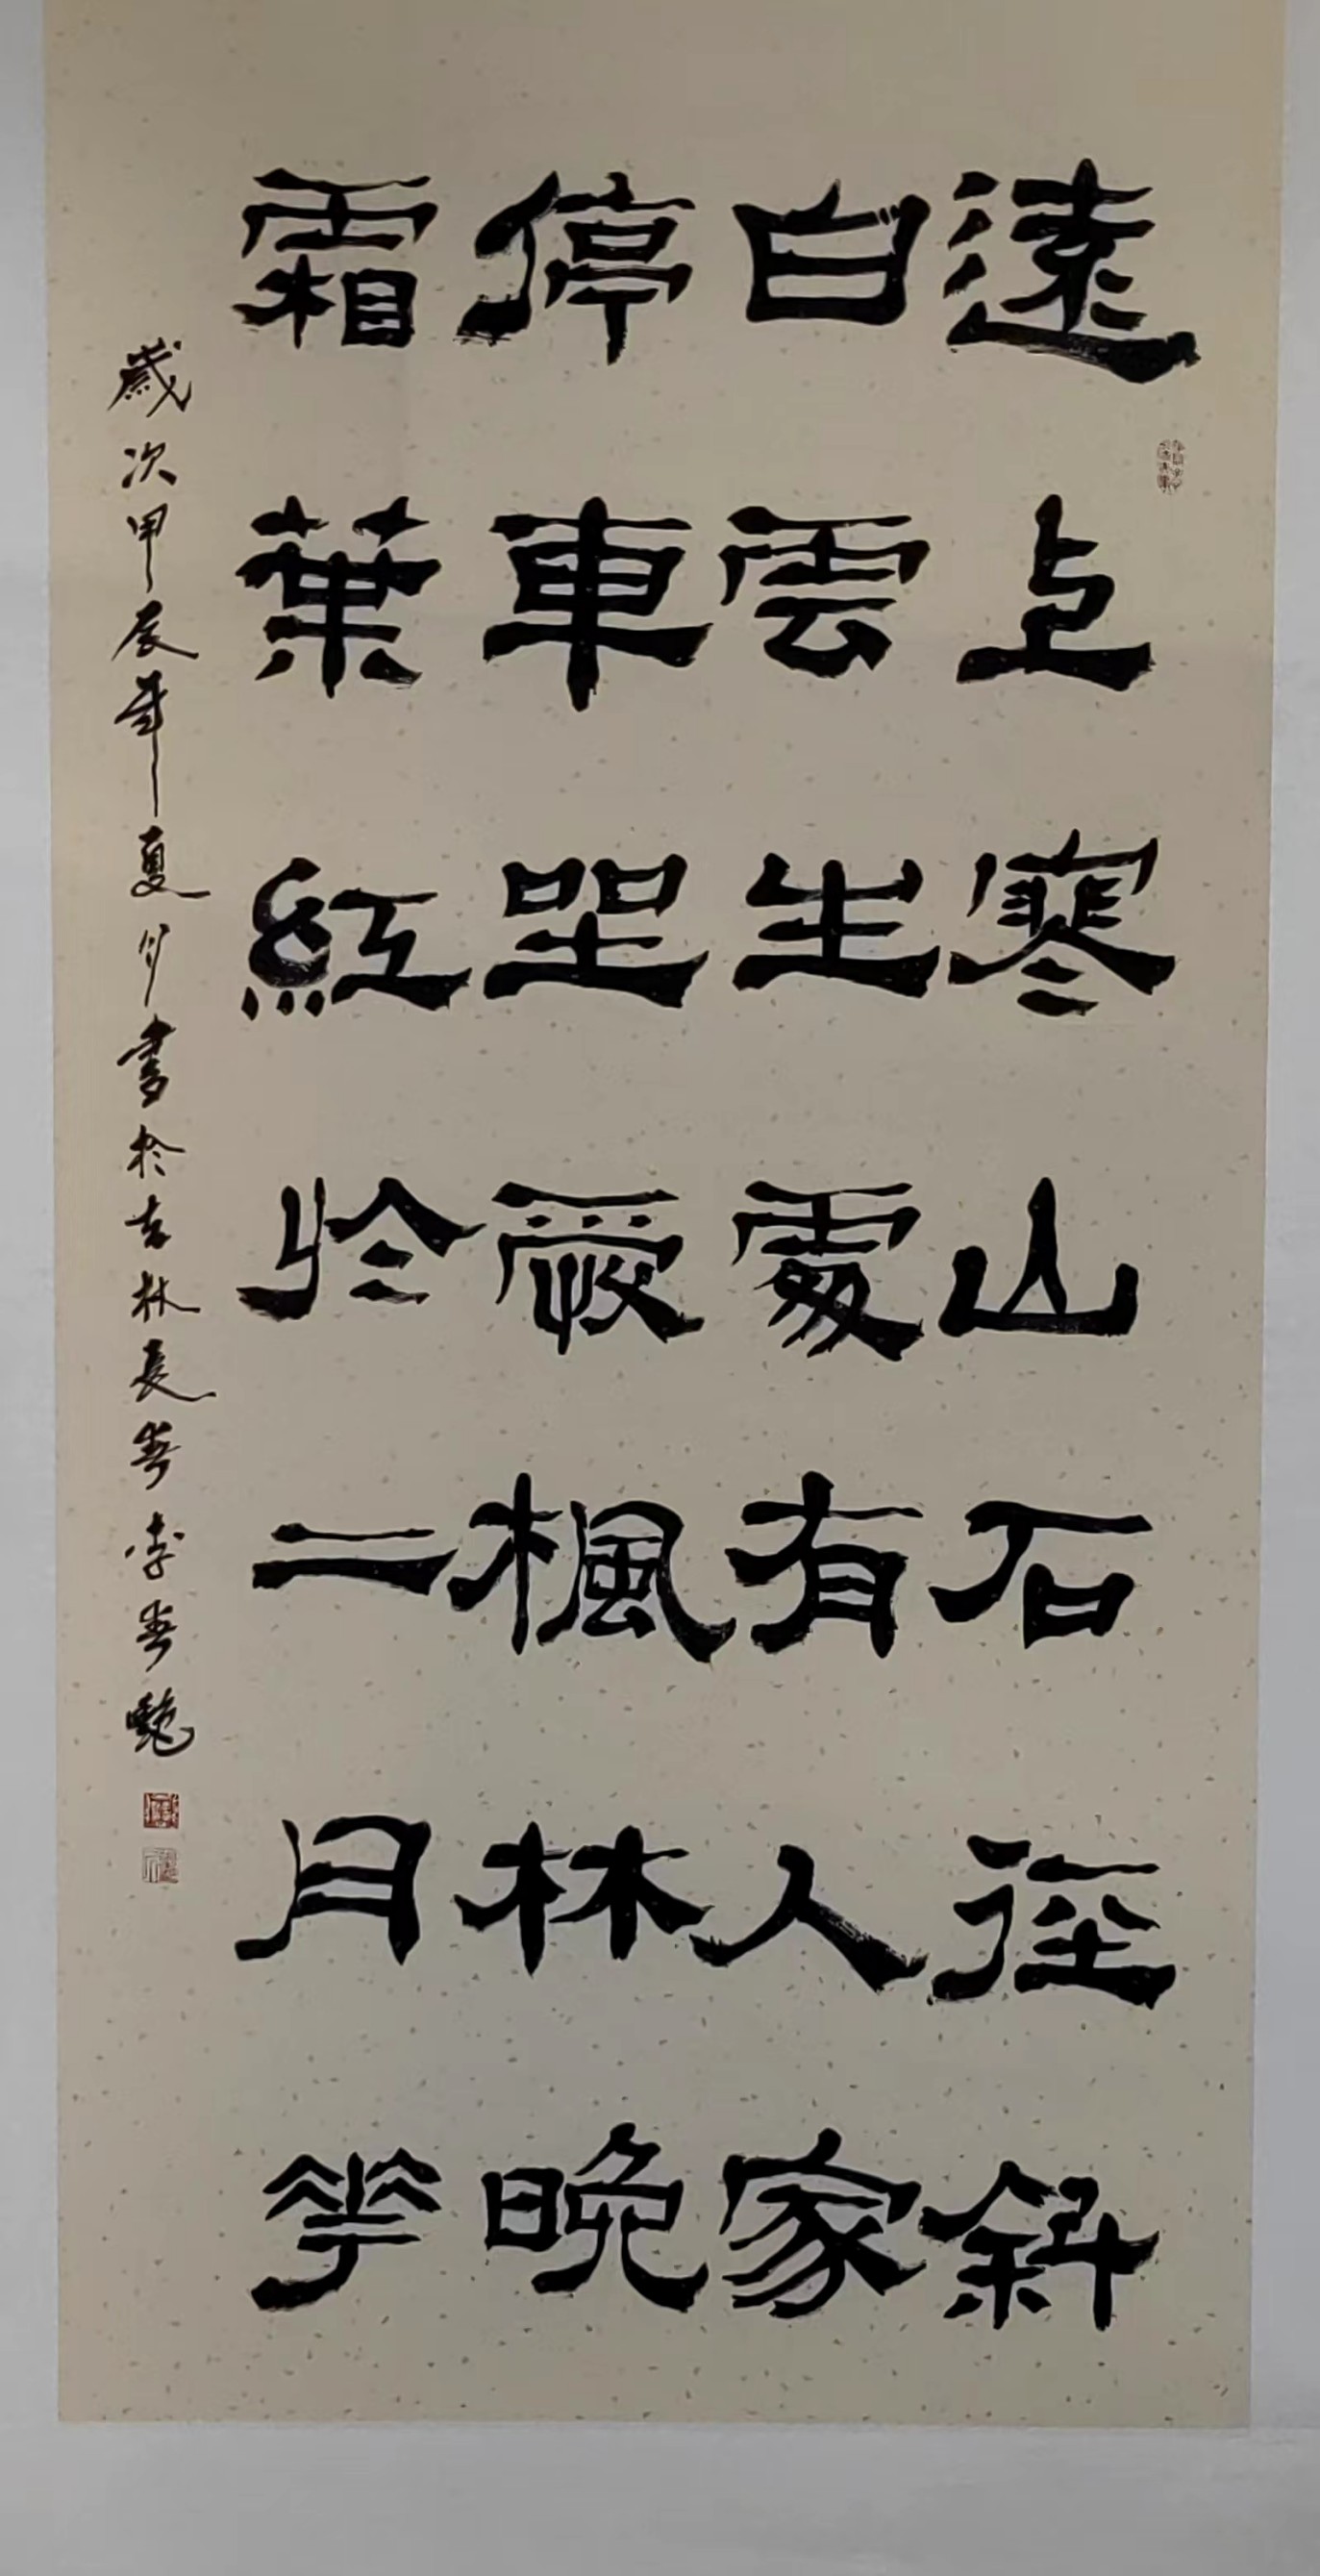 遠上寒山石徑斜
白雲生處有人家
停車坐愛楓林晚
霜葉紅於二月花
歲次甲辰年夏月書於吉林長春李春艷